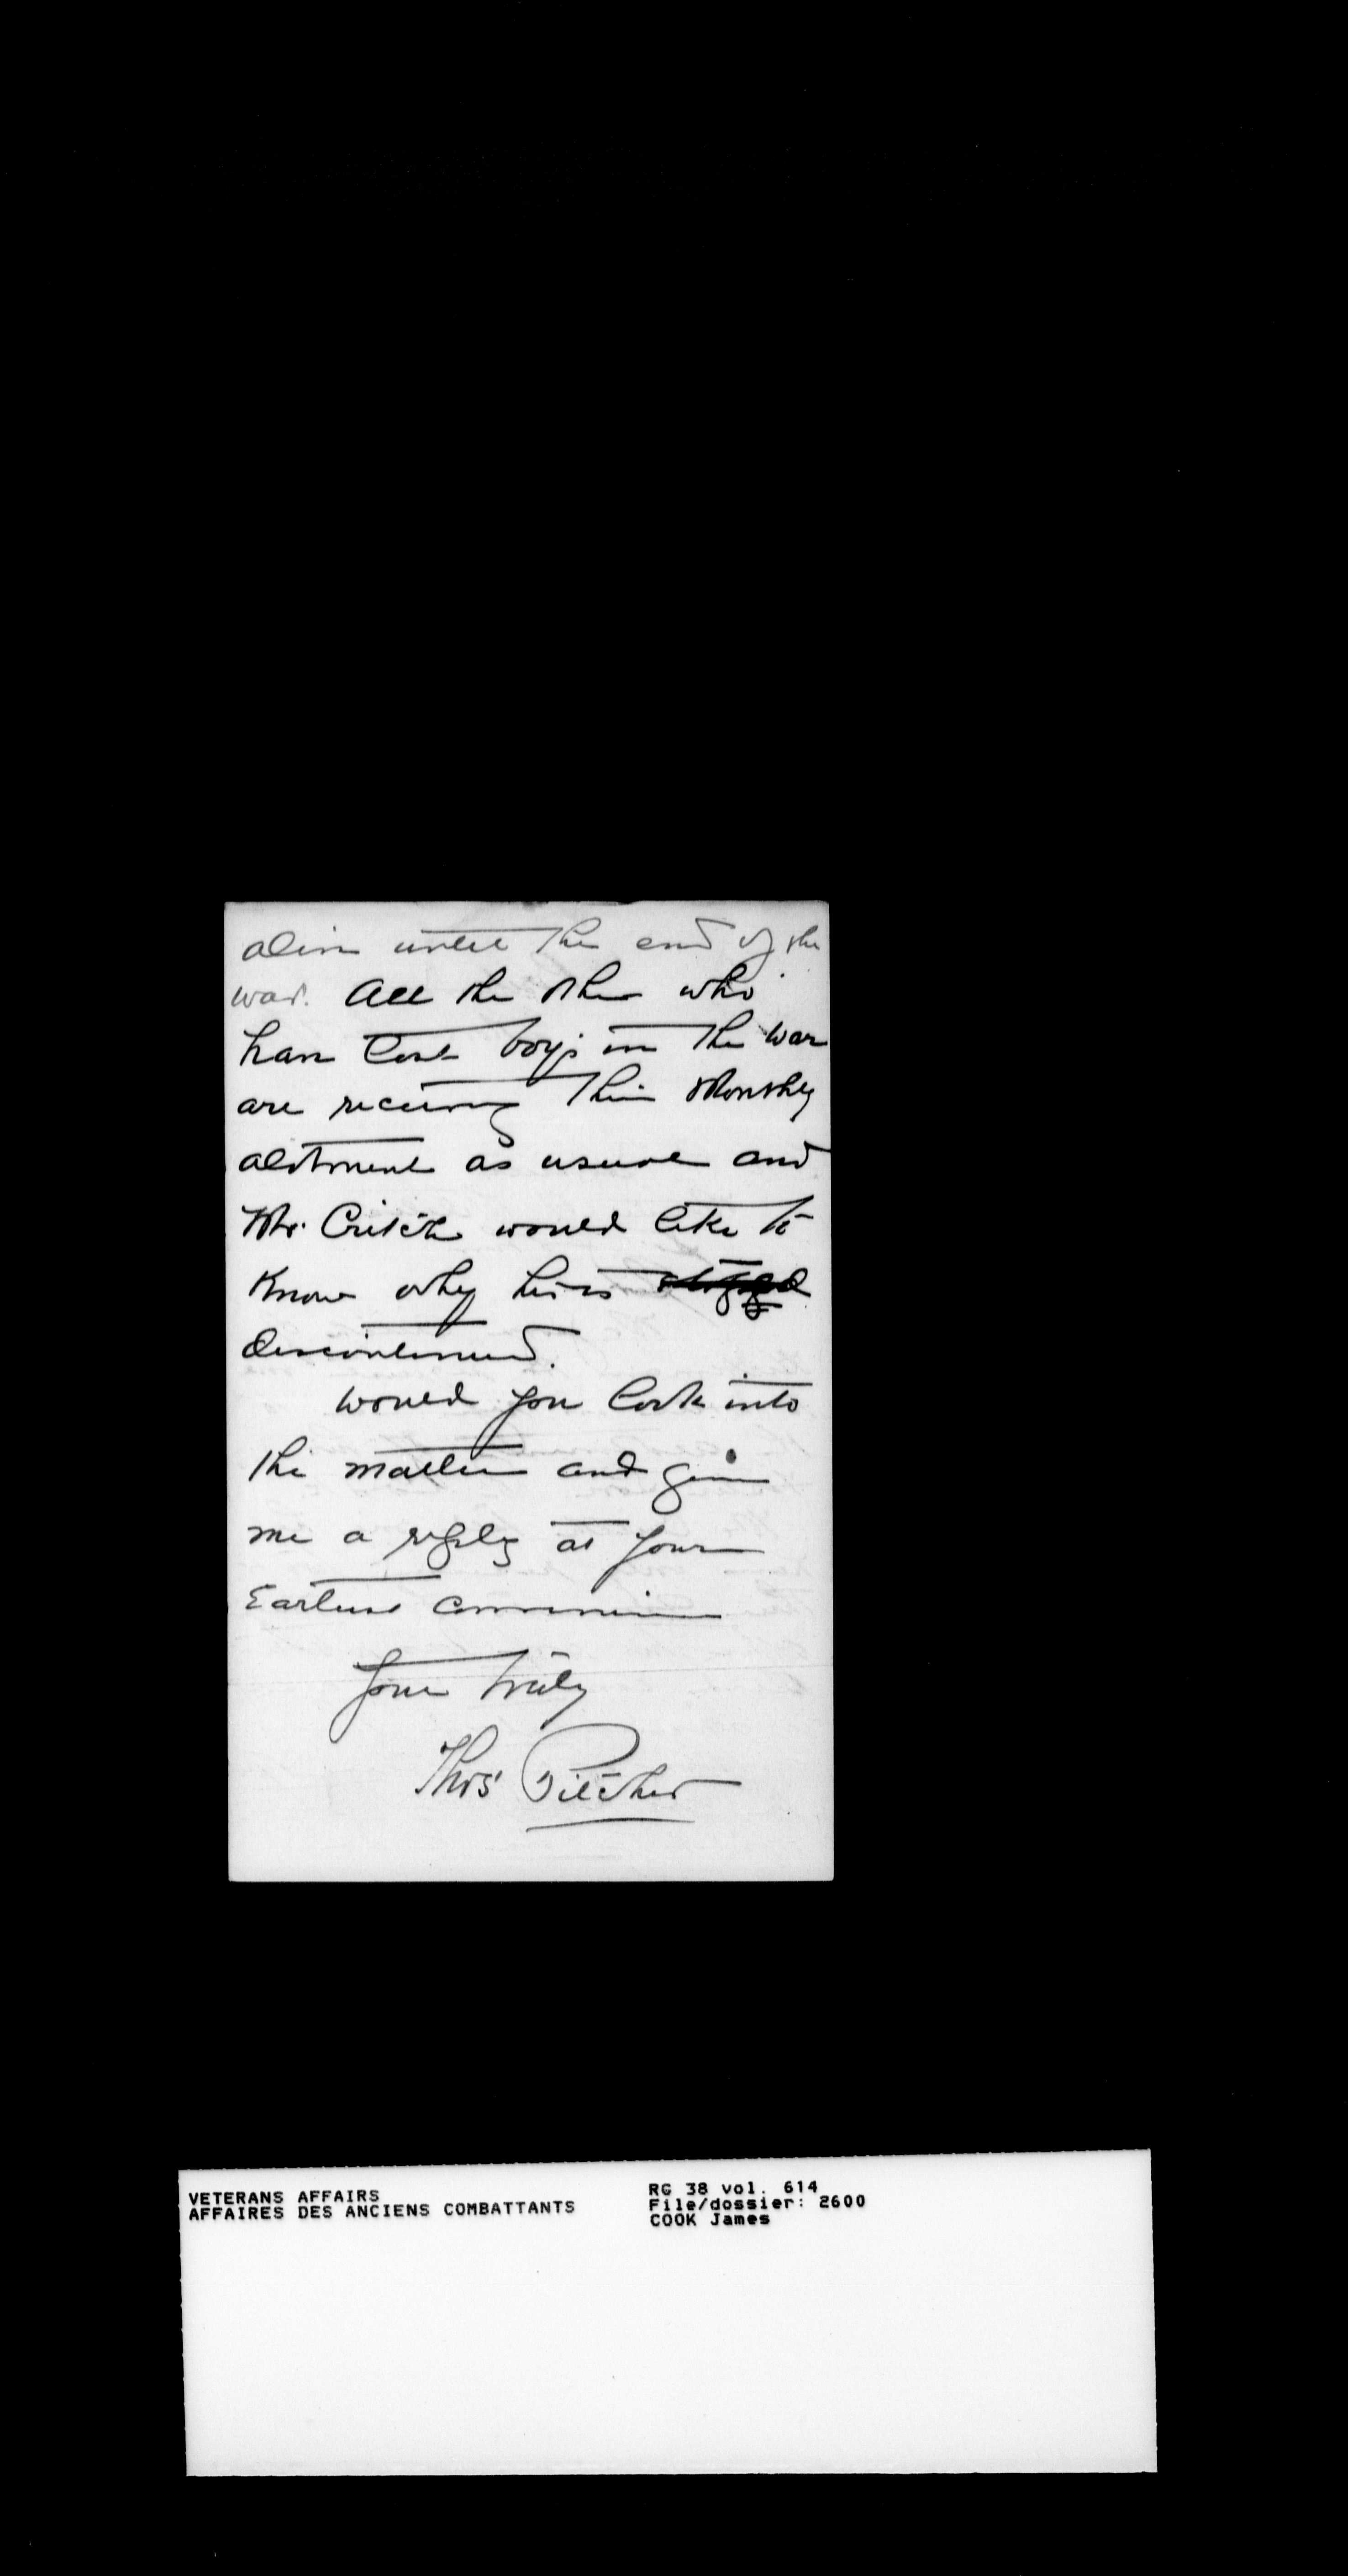 alive until the end of the
war. All the other who
have lost boys in the war
are receiving their Monthly
alotment as usual and
Mr. Critch would like to
know why his is stopped
discontinued.
Would you look into
the matter and give
me a reply at your
Earliest convenience
Yours truly
Thos Pilcher
VETERANS AFFAIRS
AFFAIRES DES ANCIENS COMBATTANTS
RG 38 vol. 614
File/dossier: 2600
COOK James